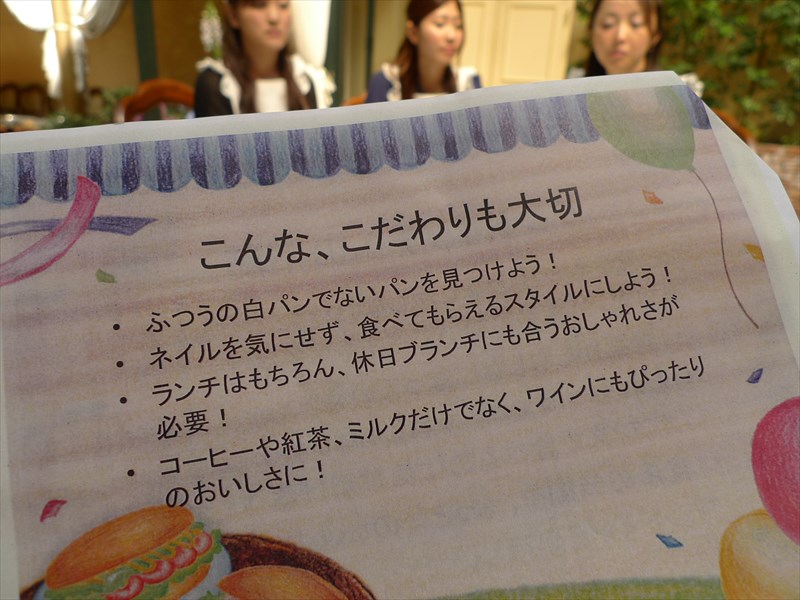 こんな、こだわりも大切
• ふつうの白パンでないパンを見つけよう！
• ネイルを気にせず、食べてもらえるスタイルにしよう！
• ランチはもちろん、休日ブランチにも合うおしゃれさが
必要！
• コーヒーや紅茶、ミルクだけでなく、ワインにもぴったり
のおいしさに！